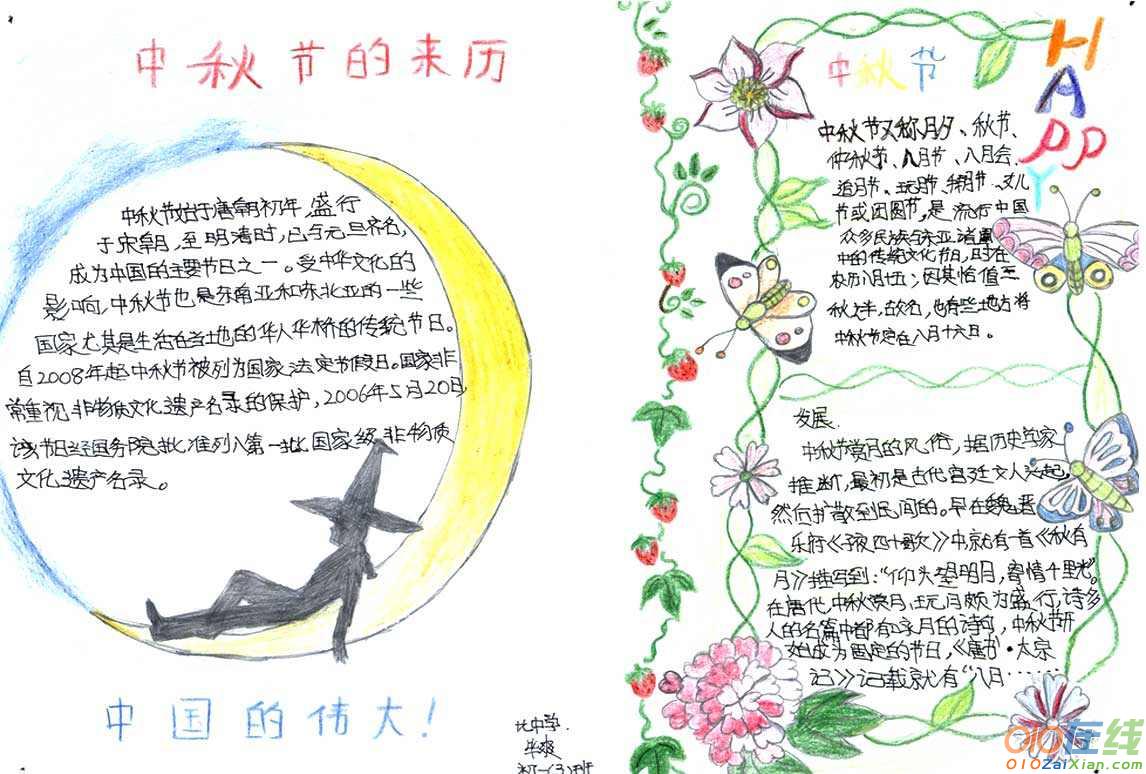 中秋节的来历
中秋节始于唐朝初年,盛行
于宋朝,至明清时,已与元旦齐名,
成为中国的主要节日之一。受中华文化的
影响,中秋节也是东南亚和东北亚的一些
国家尤其是生活在当地的华人华桥的传统节日。
自2008年起中秋节被列为国家法定节假日。国家非
常重视非物质文化遗产名录的保护,2006年5月20日
该节日经国务院批准列入第一批国家级非物质
文化遗产名录。
中国的伟大!
比中学
初一(3)班
HAPPY
中秋节
中秋节又称月夕、秋节、
仲秋节、八月节、八月会、
追月节、玩月节、拜月节、女儿
节或团圆节,是流行中国
众多民族与东亚诸国
中的传统文化节日,时在
农历八月十五;因其恰值三
秋之半,故名,也有些地方将
中秋节定在八月十六日。
发展.
中秋节赏月的风俗,据历史学家
推断,最初是古代宫廷文人兴起,
然后扩散到民间的。早在魏晋
乐府《子夜四十歌》中就有一首《秋有
月》描写到:“仰头望明月,寄情千里光”。
在唐代,中秋赏月、玩月颇为盛行,许多
人的名篇中都有咏月的诗句,中秋节开
始成为固定的节日,《唐书·太宗
记》记载就有“八月……
010在线
010ZaiXian.com